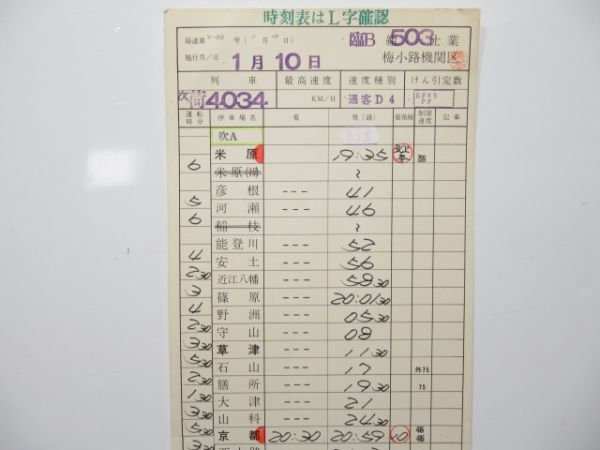 時刻表はL字確認
局達第 号( 月 日)
施行月/日 1月10日
臨B 組 503 仕業
梅小路機関区
列車 最高速度 速度種別 けん引定数
荷4034 KM/H 通客D4
運転時分 停車場名 着 発(通) 着発線 制限速度 記事
吹A
米原 19:35
6 米原(操) 〜
彦根 --- 41
5 河瀬 --- 46
6 稲枝 〜
能登川 --- 52
4 安土 --- 56
2 30 近江八幡 --- 58 30
3 篠原 --- 20:01 30
4 野洲 --- 05 30
2 30 守山 --- 08
3 30 草津 --- 11 30
5 30 石山 --- 17 外75
2 30 膳所 --- 19 30 75
1 30 大津 --- 21
3 30 山科 --- 24 30
5 30 京都 20:30 20:59 10